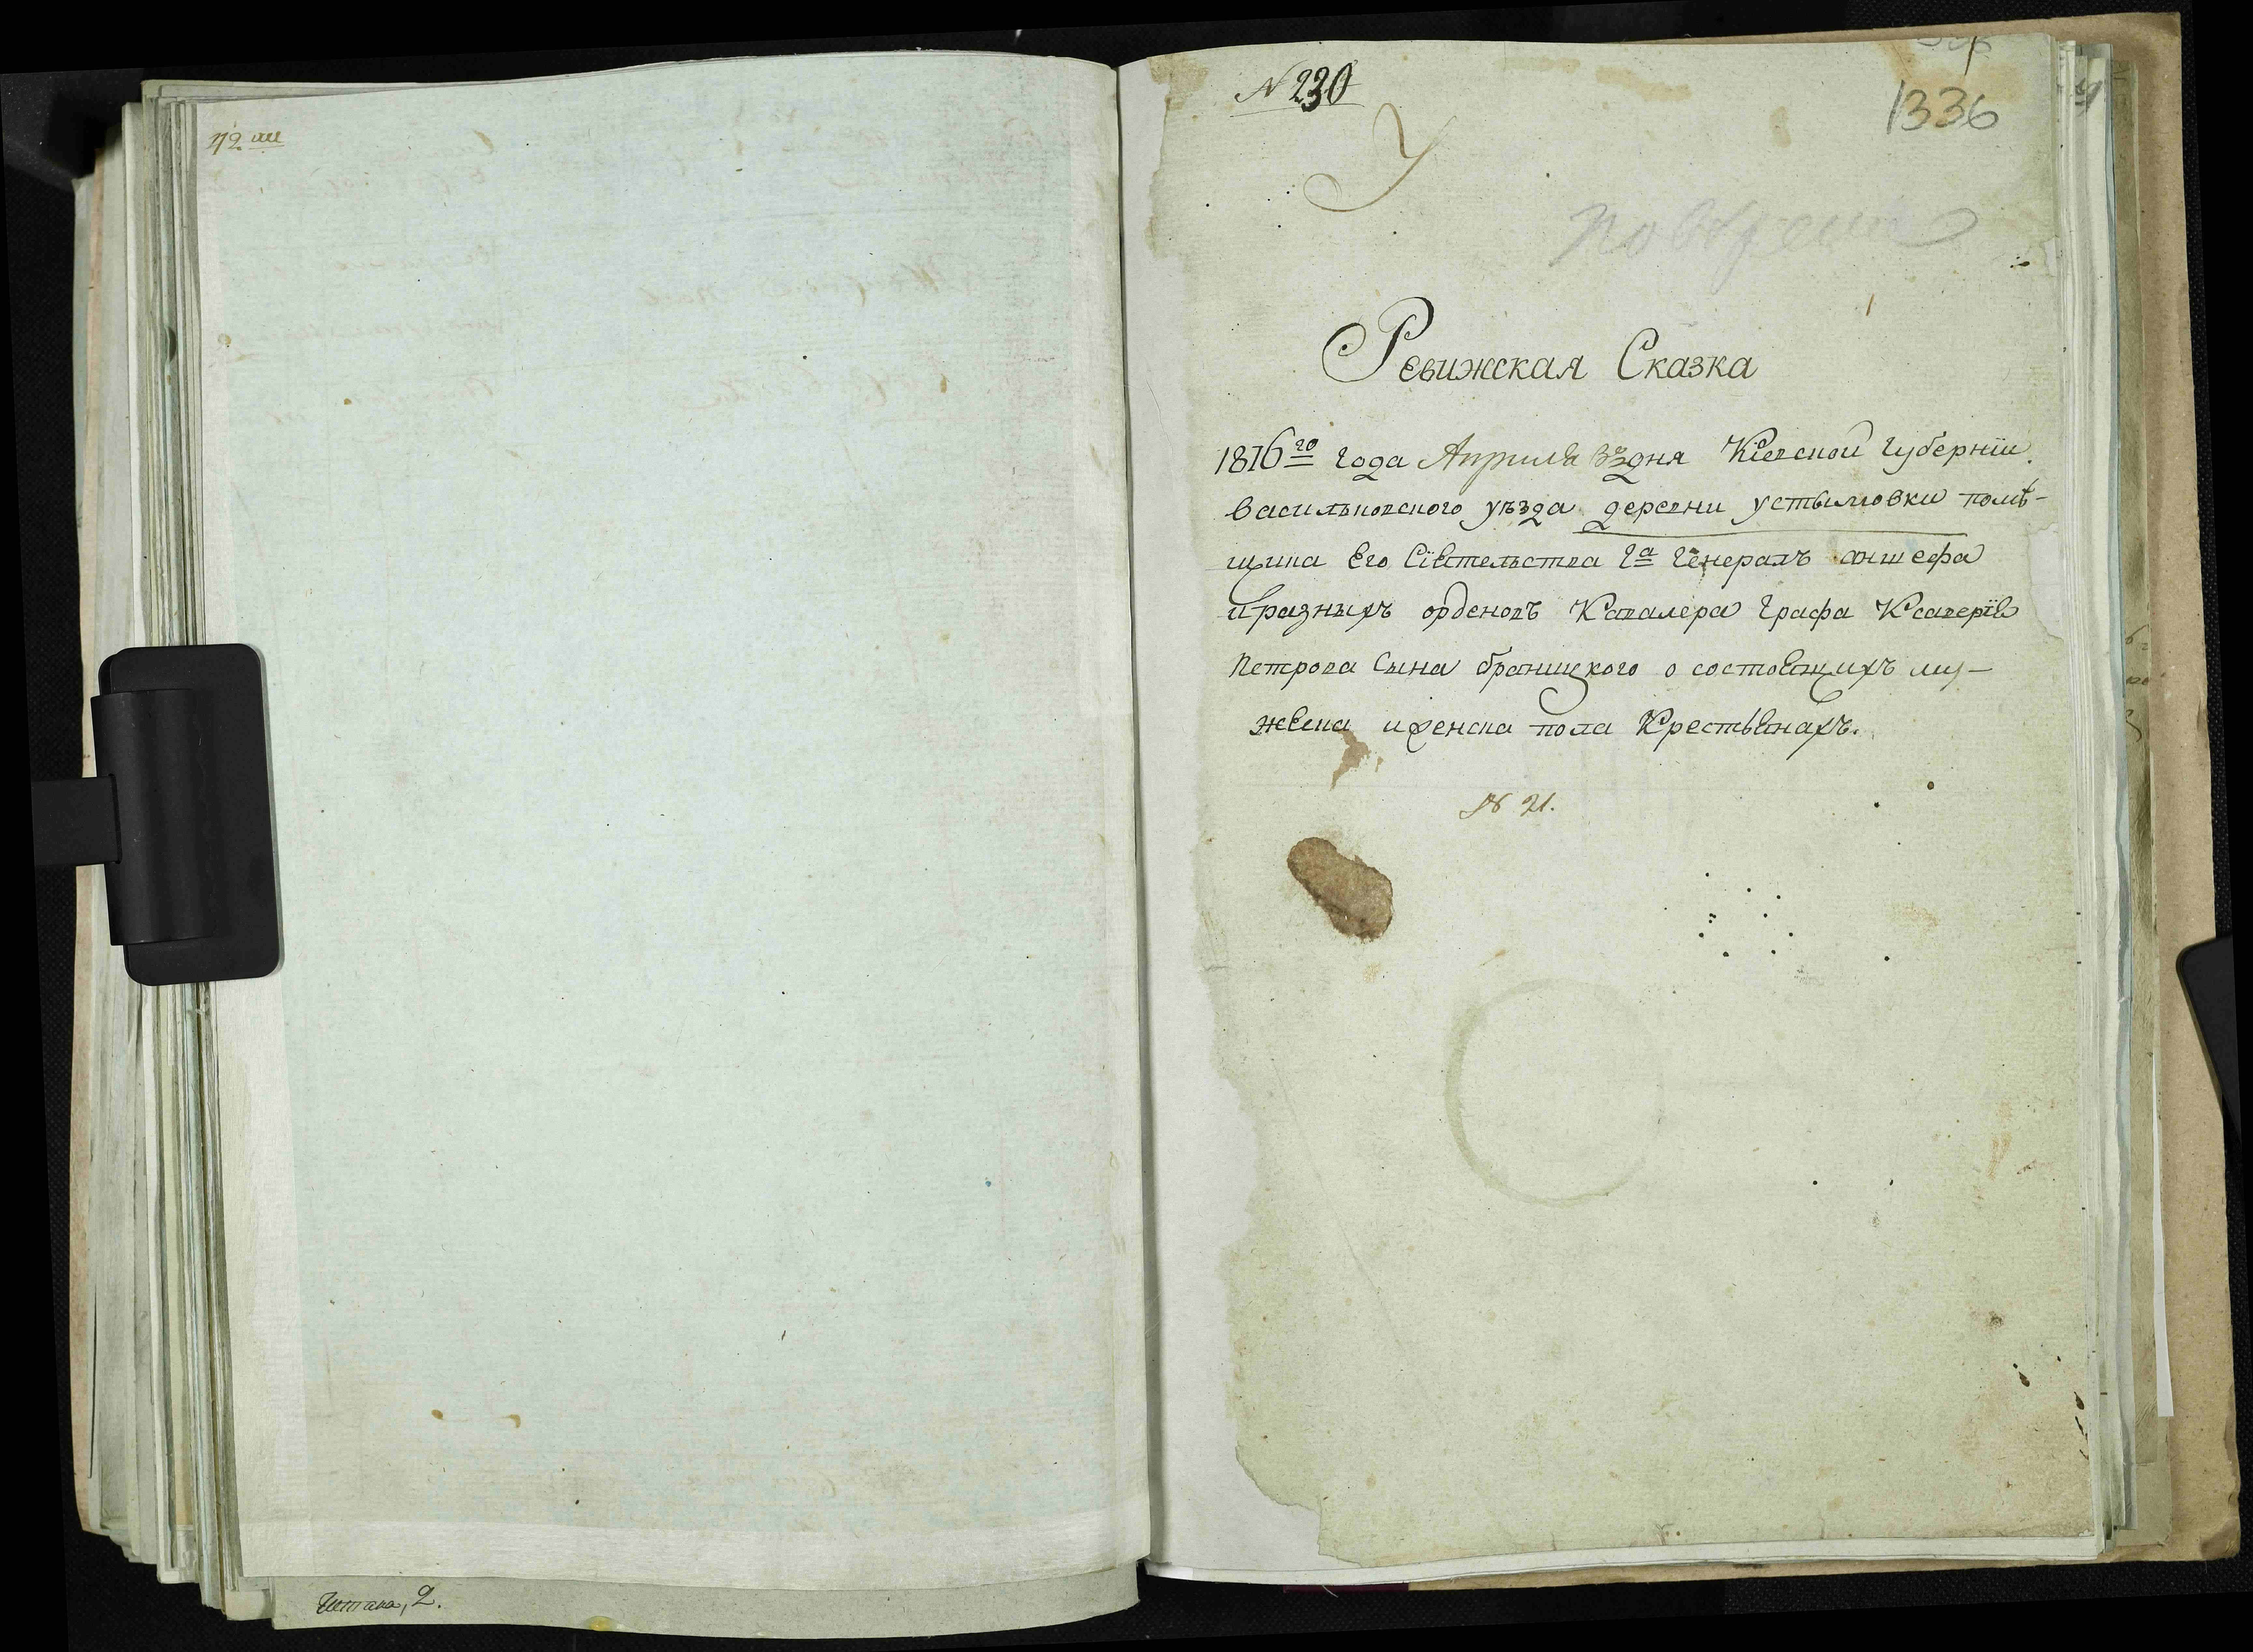 № 230
1336
У
Ревижская Сказка
1816го года Апреля 30 дня Кіевской Губерніи
васильковского уѣзда деревни устымовки помѣ-
щика Его Сіятельства Га Генералъ аншефа
и разныхъ орденовъ Кавалера Графа Ксаверія
Петрова Сына браницкого о состоящихъ му-
жеска и женска пола Крестьянахъ.
№ 21.